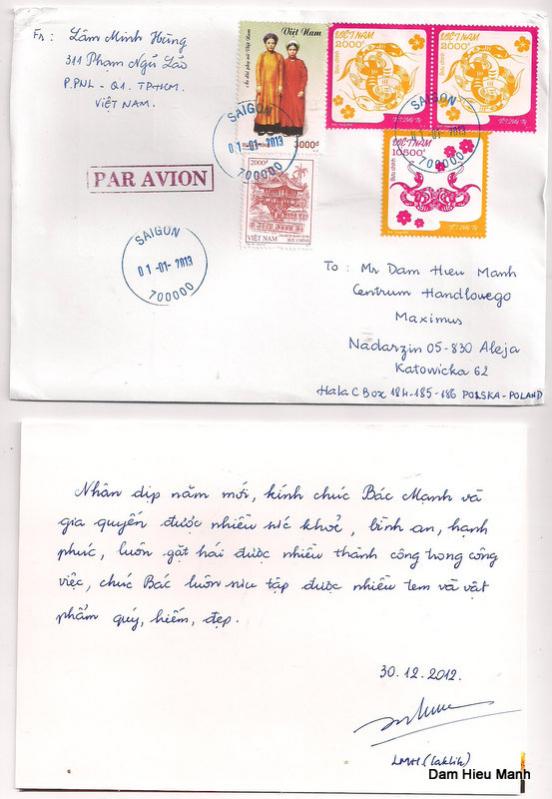 Fr: Lâm Minh Hùng
311 Phạm Ngũ Lão
P.PNL - Q1. TPHCM.
VIỆT NAM.
PAR AVION
Việt Nam
Áo dài phụ nữ Việt Nam
3000đ
VIỆT NAM
2000đ
BƯU CHÍNH
VIỆT NAM
2000đ
VIỆT NAM
10500đ
BƯU CHÍNH
2000đ
VIỆT NAM
BƯU CHÍNH
SAIGON
01-01-2013
700000
SAIGON
01-01-2013
700000
SAIGON
01-01-2013
700000
To: Mr Dam Hieu Manh
Centrum Handlowego
Maximus
Nadarzin 05-830 Aleja
Katowicka 62
Hala C Box 184-185-186 POLSKA-POLAND
Nhân dịp năm mới, kính chúc Bác Mạnh và
gia quyến được nhiều sức khoẻ, bình an, hạnh
phúc, luôn gặt hái được nhiều thành công trong công
việc, chúc Bác luôn sưu tập được nhiều tem và vật
phẩm quý, hiếm, đẹp.
30.12.2012.
LMH (laklih)
Dam Hieu Manh